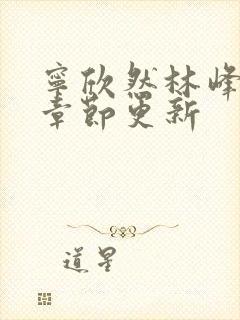 寧欣然林峰
章節更新
道星